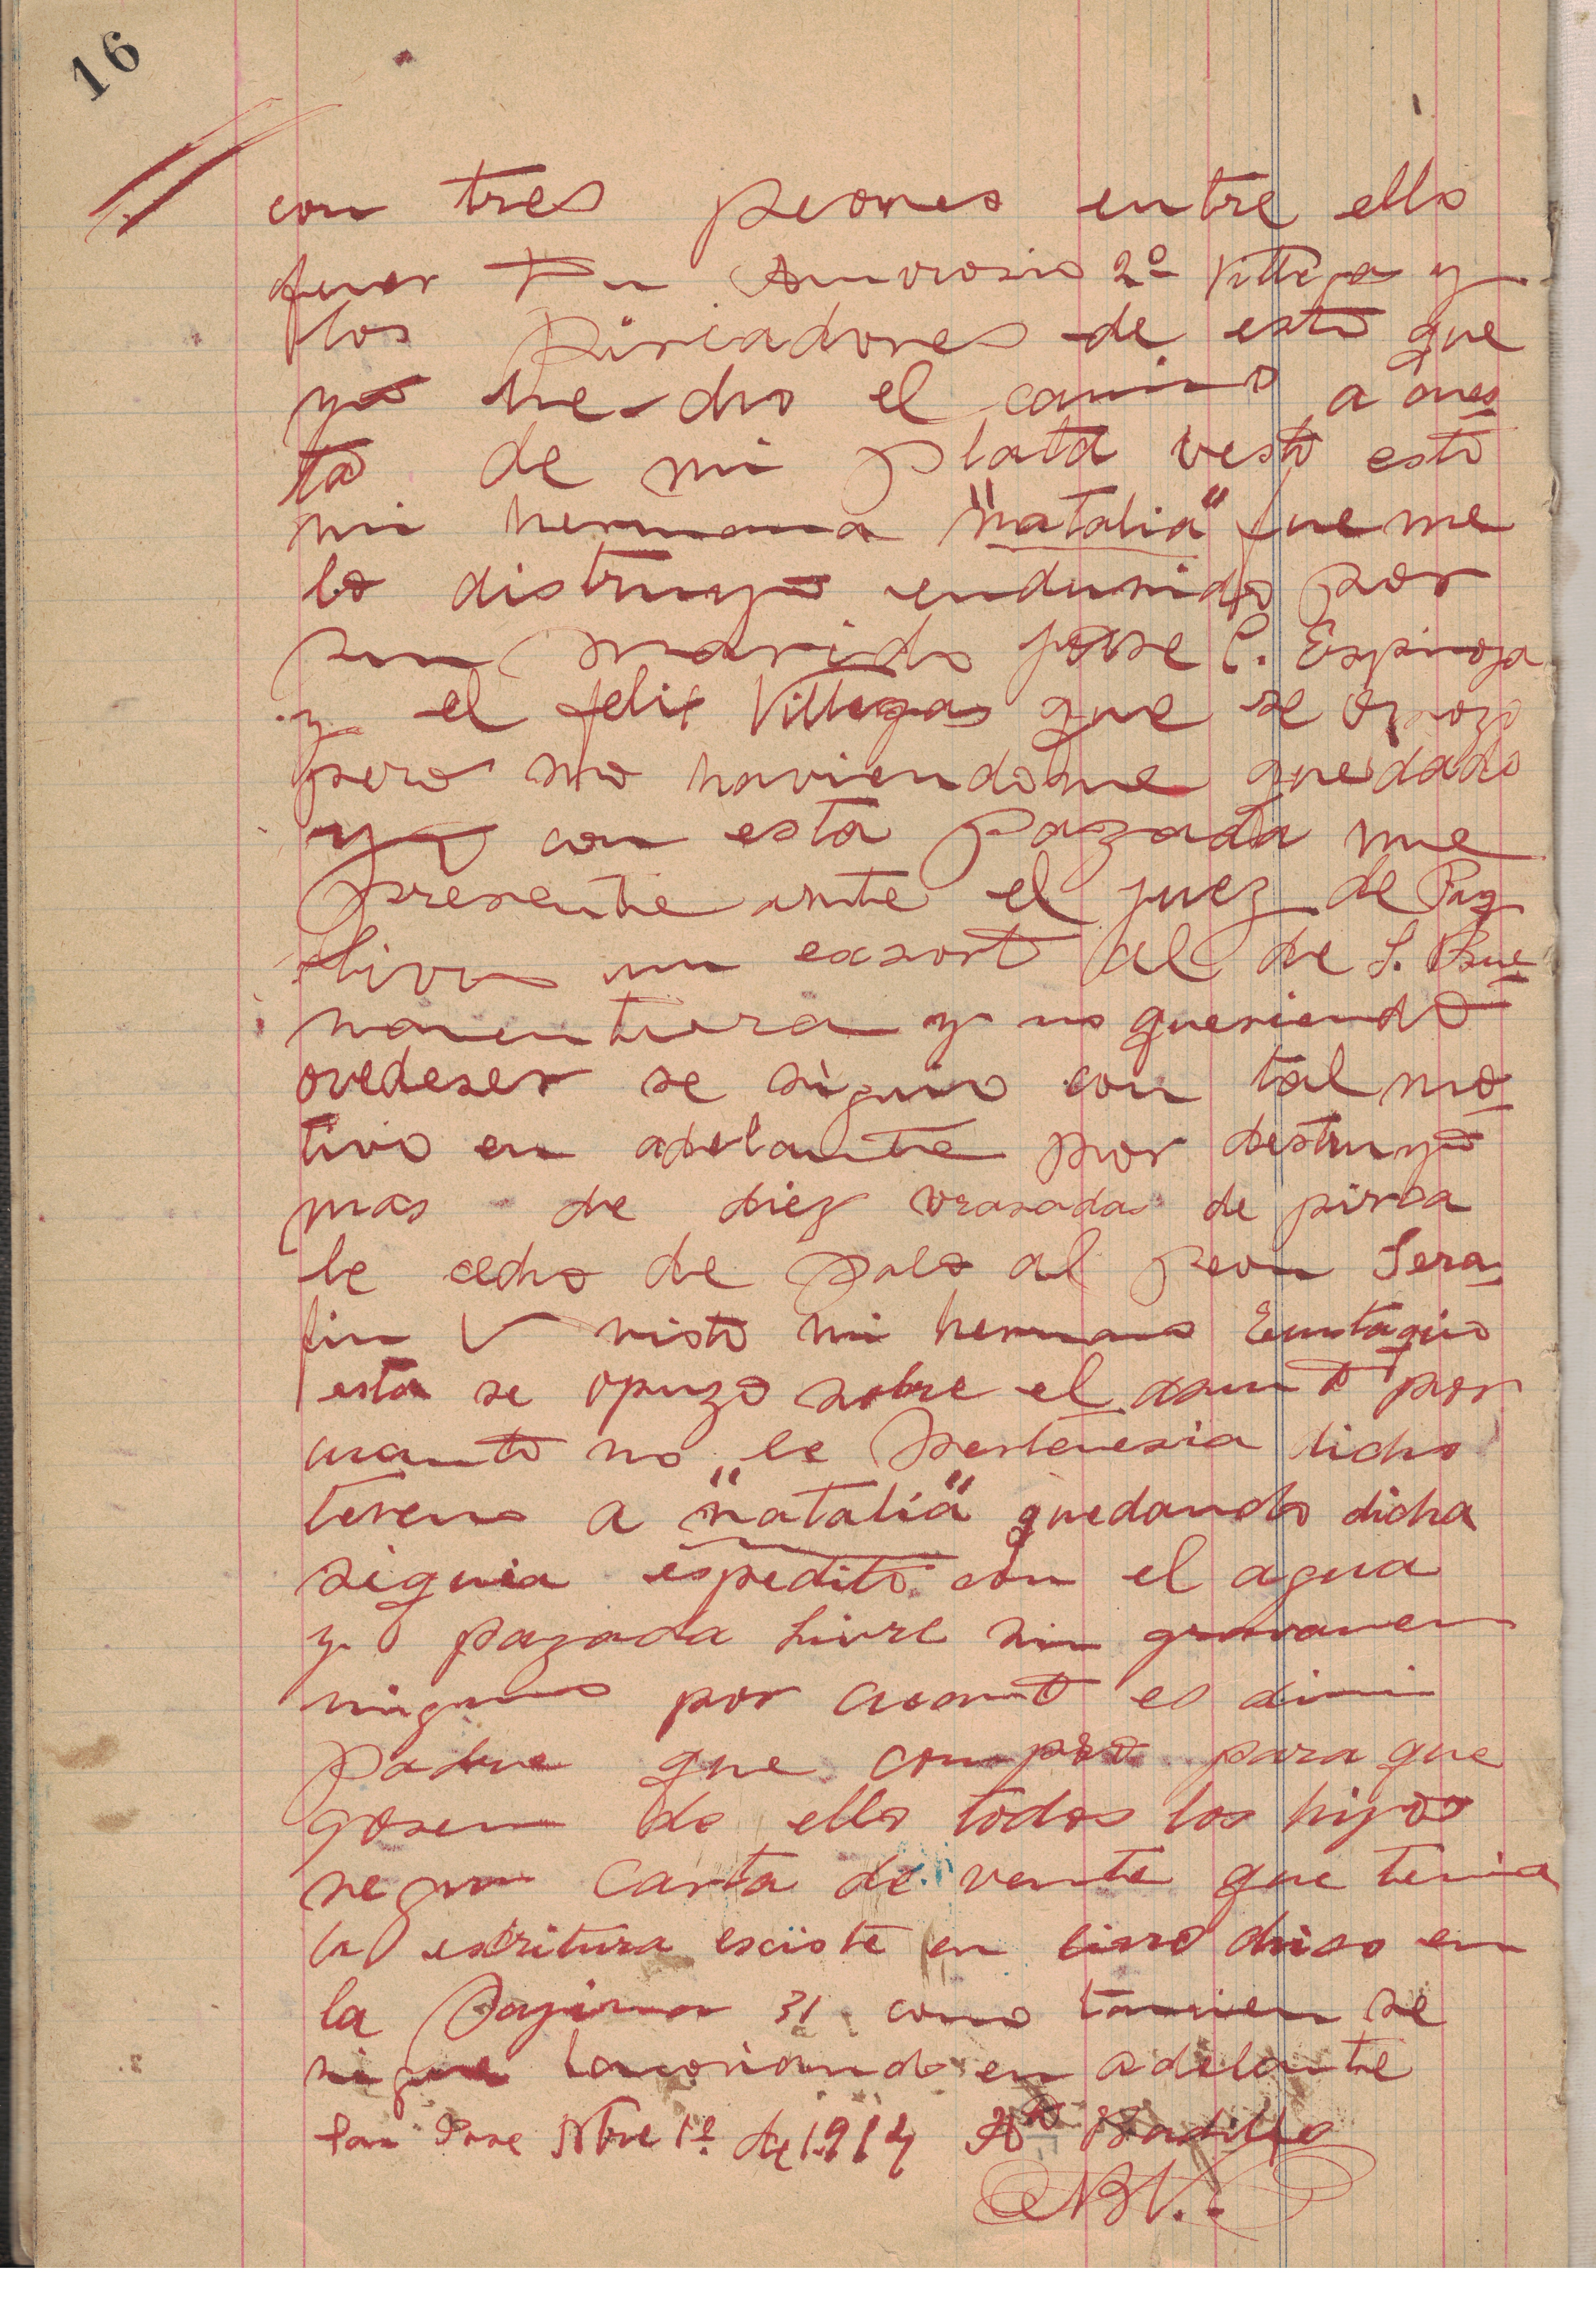 16
con tres peones entre ello
fueron Ambrosio 2º Villega y
los pircadores de esto que
yo he dho el camino a cues
ta de mi plata vesto esto
mi hermana "natalia" fue me
lo distruyo endusido por
su marido Jose C. Espinoza
y el felix Villegas que se opozo
pero no haviendome quedado
yo con esta pazada me
presente ante el juez de Paz
livro un exsorto al de S. Bue
naventura y no queriendo
ovedeser se siguio con tal mo
tivo en adelante por destruyo
mas de diez vrasadas de pirca
le echo de palo al peon Sera
fin V visto mi hermano Eustaquio
esta se opuzo sobre el asunto por
cuanto no le pertenesia dicho
tereno a "natalia" quedando dicha
siquia espedito con el agua
y pazada livre sin gravamen
ninguno por cuanto es di mi
padre que compro para que
gosen de ello todos los hijos
segun carta de vente que tenia
la escritura exciste en livro
la pagina 31 como tamvien se
sigue en adelante
San Jose Nbre 1º de 1914 Badillo
NBV.